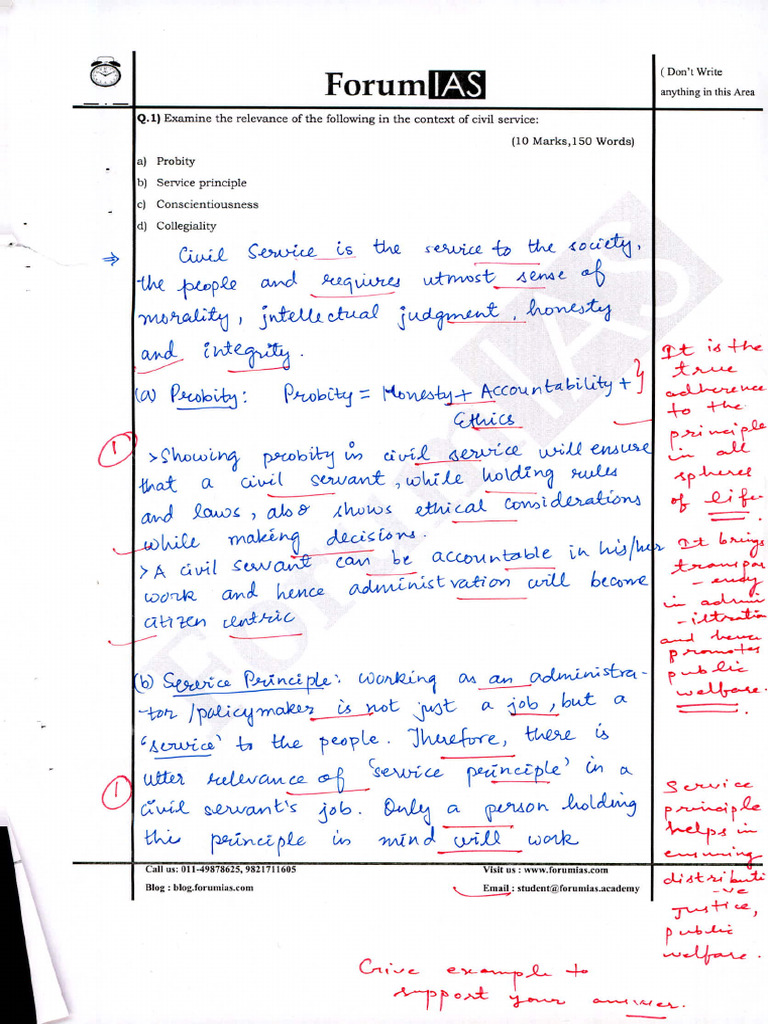 ForumIAS
( Don't Write
anything in this Area
Q.1) Examine the relevance of the following in the context of civil service:
(10 Marks,150 Words)
a) Probity
b) Service principle
c) Conscientiousness
d) Collegiality
⇒ Civil Service is the service to the society,
the people and requires utmost sense of
morality, intellectual judgment, honesty
and integrity.
(a) Probity: Probity = Honesty + Accountability +
Ethics
1
> Showing probity in civil service will ensure
that a civil servant, while holding rules
and laws, also shows ethical considerations
while making decisions.
> A civil servant can be accountable in his/her
work and hence administration will become
citizen centric
It is the
true
adherence
to the
principle
in all
spheres
of life.
It brings
transpar
-ency
in admin
-istration
and hence
promotes
public
welfare.
(b) Service Principle: Working as an administra-
-tor/policymaker is not just a job, but a
'service' to the people. Therefore, there is
utter relevance of 'service principle' in a
civil servant's job. Only a person holding
this principle in mind will work
1
Service
principle
helps in
ensuring
distributi
-ve
Justice,
public
welfare.
Call us: 011-49878625, 9821711605
Visit us : www.forumias.com
Blog : blog.forumias.com
Email : student@forumias.academy
Give example to
support your answer.
ForumIAS